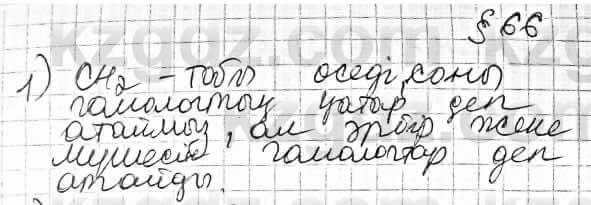 § 66
1) CH2 - тобы өседі, соны
гомологтық қатар деп
атаймыз, ал әрбір жеке
мүшесін гомологтар деп
атайды.